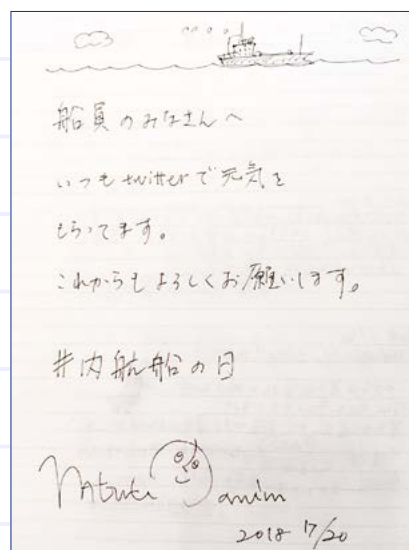 船員のみなさんへ
いつもtwitterで元気を
もらってます。
これからもよろしくお願いします。
#内航船の日
2018 7/20